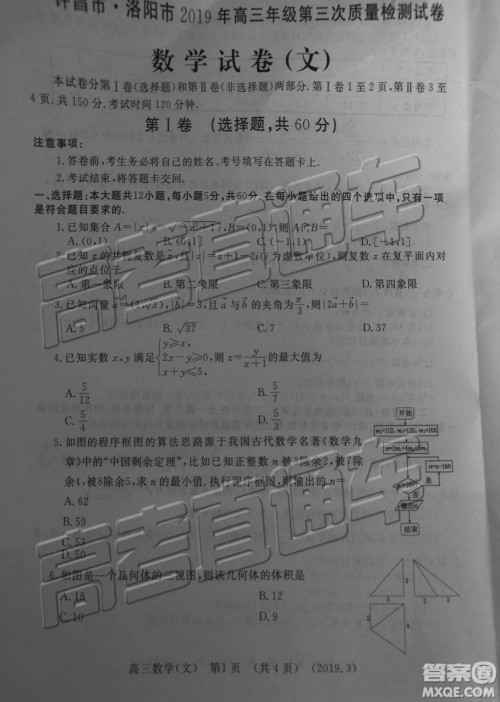 许昌市·洛阳市2019年高三年级第三次质量检测试卷
数学试卷(文)
本试卷分第Ⅰ卷(选择题)和第Ⅱ卷(非选择题)两部分.第Ⅰ卷1至2页,第Ⅱ卷3至
4页.共150分.考试时间120分钟.
第Ⅰ卷 (选择题,共60分)
注意事项:
1.答卷前,考生务必将自己的姓名、考号填写在答题卡上.
2.考试结束,将答题卡交回.
一、选择题:本大题共12小题,每小题5分,共60分.在每小题给出的四个选项中,只有一
项是符合题目要求的.
1.已知集合A={ },B=(0,1),则A∩B=
A.(0,1) B.(0,1] C. D.[-1,1]
2.已知z的共轭复数是z̄,且|z|=z̄+1-2i(i为虚数单位),则复数z在复平面内对
应的点位于
A.第一象限 B.第二象限 C.第三象限 D.第四象限
3.已知向量a=(1,√3),|b|=3,且a与b的夹角为π/3,则|2a+b|=
A.5 B.√37 C.7 D.37
4.已知实数x,y满足{y≥x, 2x-y≥0, x+y≤5,则z=y/(x+1)的最大值为
A.5/12 B.5/7
C.5/4 D.
5.如图的程序框图的算法思路源于我国古代数学名著《数学九
章》中的“中国剩余定理”,比如已知正整数n被3除余2,被7除
余4,被8除余5,求n的最小值.执行程序框图,则输出的n=
A.62
B.59
C.53
D.50
开始
6.如图是一个几何体的三视图,则该几何体的体积是
A.18 B.12
C.9 D.10
高三数学(文) 第1页 (共4页) (2019.3)
高考直通车
高考直通车
高考直通车
答案圈
MXQE.COM